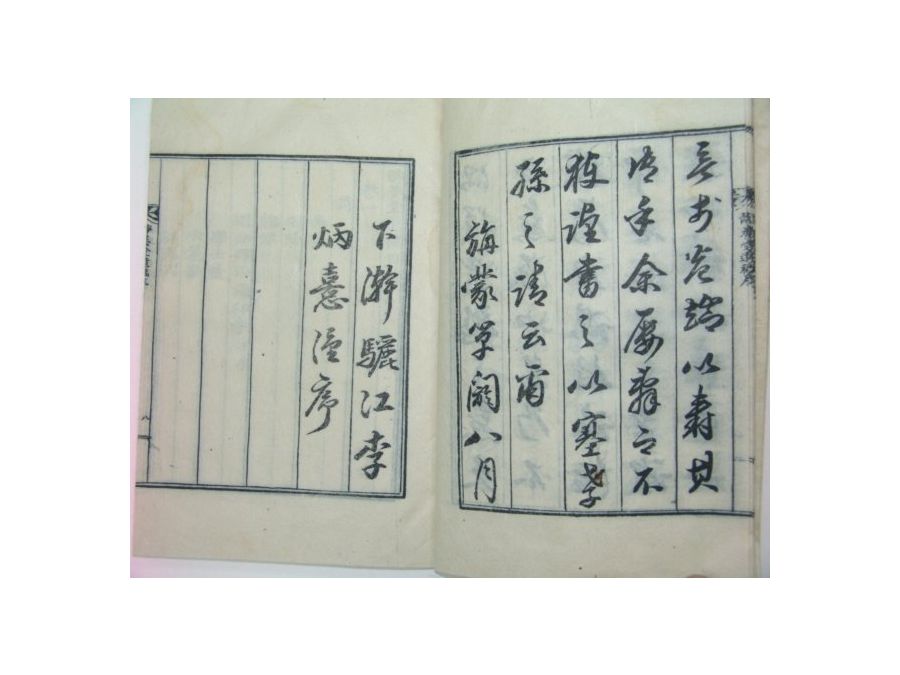 言於卷端以壽其
余屢辭之不
獲謹書之以塞孝
孫之請云爾
旃蒙單閼八月
下澣驪江李
炳憙謹序